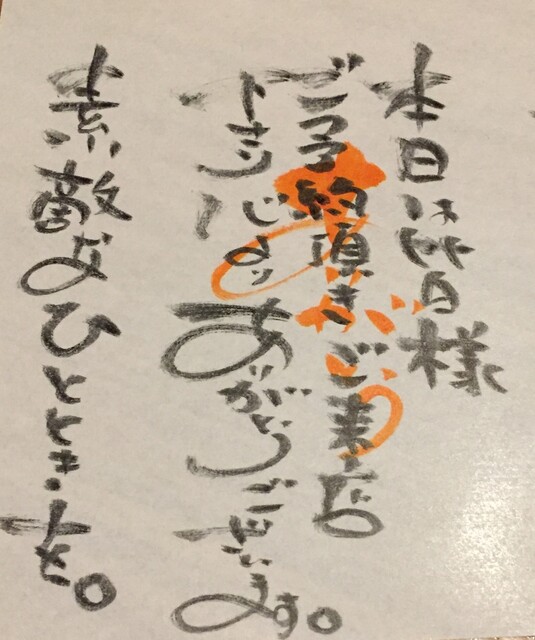 本日は皆様
ご予約頂きご来店
下さり心より
ありがとうございます。
素敵なひとときを。